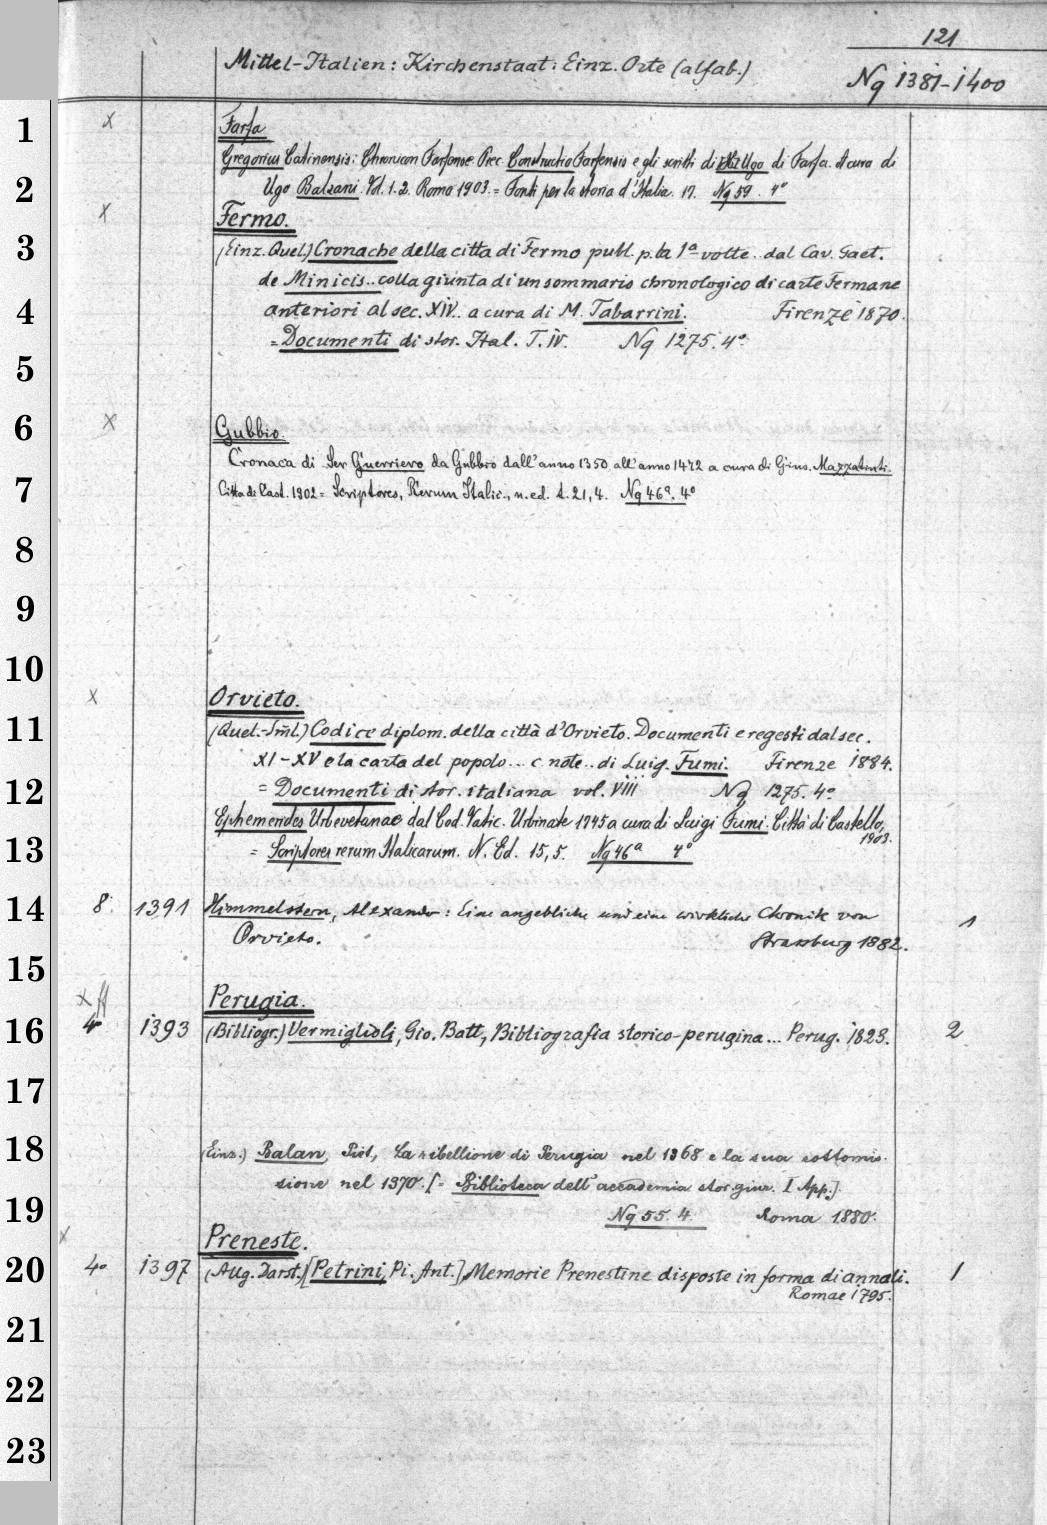 121
Mittel-Italien: Kirchenstaat: Einz. Orte (alfab.)
Nq 1381-1400
1 x Farfa
Gregorius Catinensis: Chronicon Farfense. Prec. Constructio Farfensis e gli scritti di Ugo di Farfa. A cura di
2 Ugo Balzani. Vol. 1.2. Roma 1903. = Fonti per la storia d'Italia. 17. Nq 59. 4°
x Fermo.
3 (Einz. Quel.) Cronache della citta di Fermo publ. p. la 1a volte.. dal Cav. Gaet.
de Minicis.. colla giunta di un sommario chronologico di carte Fermane
4 anteriori al sec. XIV. a cura di M. Tabarrini. Firenze 1870.
= Documenti di stor. Ital. T. IV. Nq 1275. 4°
5
6 x Gubbio.
Cronaca di Ser Guerriero da Gubbio dall'anno 1350 all'anno 1472 a cura di Gius. Mazzatinti.
7 Citta di Cast. 1902 = Scriptores, Rerum Italic., n. ed. t. 21, 4. Nq 46a. 4°
8
9
10
x Orvieto.
11 (Quel.-Sml.) Codice diplom. della città d'Orvieto. Documenti e regesti dal sec.
XI-XV e la carta del popolo... c note.. di Luig. Fumi. Firenze 1884.
12 = Documenti di stor. italiana vol. VIII Nq 1275. 4°
Ephemerides Urbevetanae dal Cod. Vatic. Urbinate 1745 a cura di Luigi Fumi. Città di Castello,
1903.
13 = Scriptores rerum Italicarum. N. Ed. 15, 5. Nq 46a 4°
14 8° 1391 Himmelstern, Alexander: Eine angebliche und eine wirkliche Chronik von
Orvieto. Strassburg 1882. 1
15
x Perugia.
16 4° 1393 (Bibliogr.) Vermiglioli, Gio. Batt., Bibliografia storico-perugina... Perug. 1823. 2
17
18 (Einz.) Balan, Piet., La ribellione di Perugia nel 1368 e la sua sottomis-
sione nel 1370. [= Biblioteca dell' accademia stor. giur. I App.].
19 Nq 55. 4. Roma 1880.
x Preneste.
20 4° 1397 (Allg. Darst.) [Petrini, Pi. Ant.], Memorie Prenestine disposte in forma di annali. 1
Romae 1795.
21
22
23